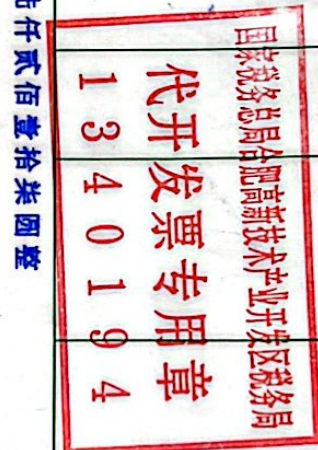 国家税务总局合肥高新技术产业开发区税务局
代开发票专用章
1340194
仟贰佰壹拾柒圆整